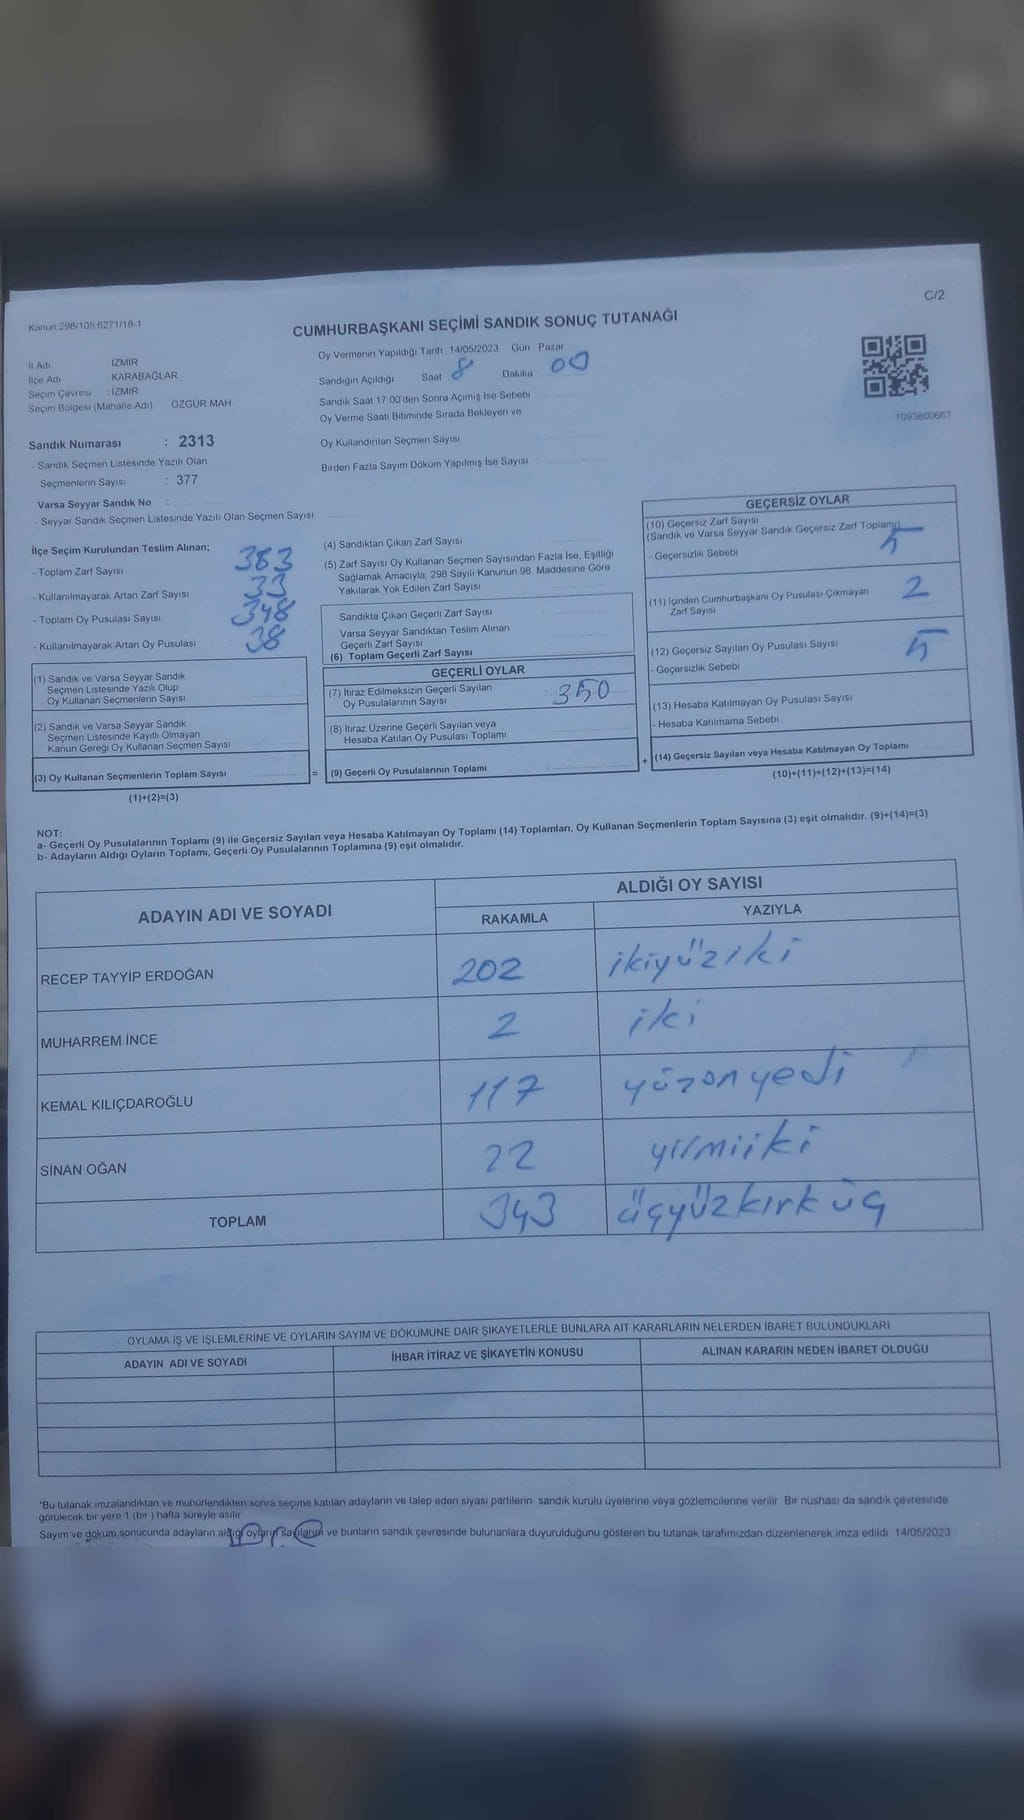 C/2
Kanun 298/105.6271/18-1
CUMHURBAŞKANI SEÇİMİ SANDIK SONUÇ TUTANAĞI
İl Adı IZMIR
İlçe Adı : KARABAĞLAR
Seçim Çevresi : IZMIR
Seçim Bölgesi (Mahalle Adı) ÖZGÜR MAH.
Sandık Numarası : 2313
- Sandık Seçmen Listesinde Yazılı Olan
Seçmenlerin Sayısı : 377
Varsa Seyyar Sandık No :
- Seyyar Sandık Seçmen Listesinde Yazılı Olan Seçmen Sayısı
Oy Vermenin Yapıldığı Tarih 14/05/2023 Gün Pazar
Sandığın Açıldığı Saat 8 Dakika 00
Sandık Saat 17:00'den Sonra Açılmış İse Sebebi
Oy Verme Saati Bitiminde Sırada Bekleyen ve
Oy Kullandırılan Seçmen Sayısı :
Birden Fazla Sayım Döküm Yapılmış İse Sayısı :
1093800667
İlçe Seçim Kurulundan Teslim Alınan;
- Toplam Zarf Sayısı 383
- Kullanılmayarak Artan Zarf Sayısı 33
- Toplam Oy Pusulası Sayısı 348
- Kullanılmayarak Artan Oy Pusulası 38
(1) Sandık ve Varsa Seyyar Sandık
Seçmen Listesinde Yazılı Olup
Oy Kullanan Seçmenlerin Sayısı
(2) Sandık ve Varsa Seyyar Sandık
Seçmen Listesinde Kayıtlı Olmayan
Kanun Gereği Oy Kullanan Seçmen Sayısı
(3) Oy Kullanan Seçmenlerin Toplam Sayısı
=
(1)+(2)=(3)
(4) Sandıktan Çıkan Zarf Sayısı
(5) Zarf Sayısı Oy Kullanan Seçmen Sayısından Fazla İse, Eşitliği
Sağlamak Amacıyla, 298 Sayılı Kanunun 98. Maddesine Göre
Yakılarak Yok Edilen Zarf Sayısı
Sandıkta Çıkan Geçerli Zarf Sayısı
Varsa Seyyar Sandıktan Teslim Alınan
Geçerli Zarf Sayısı
(6) Toplam Geçerli Zarf Sayısı
GEÇERLİ OYLAR
(7) İtiraz Edilmeksizin Geçerli Sayılan
Oy Pusulalarının Sayısı : 350
(8) İtiraz Üzerine Geçerli Sayılan veya
Hesaba Katılan Oy Pusulası Toplamı
(9) Geçerli Oy Pusulalarının Toplamı :
+
GEÇERSİZ OYLAR
(10) Geçersiz Zarf Sayısı
(Sandık ve Varsa Seyyar Sandık Geçersiz Zarf Toplamı)
- Geçersizlik Sebebi 5
(11) İçinden Cumhurbaşkanı Oy Pusulası Çıkmayan
Zarf Sayısı 2
(12) Geçersiz Sayılan Oy Pusulası Sayısı 5
- Geçersizlik Sebebi
(13) Hesaba Katılmayan Oy Pusulası Sayısı
- Hesaba Katılmama Sebebi
(14) Geçersiz Sayılan veya Hesaba Katılmayan Oy Toplamı
(10)+(11)+(12)+(13)=(14)
NOT:
a- Geçerli Oy Pusulalarının Toplamı (9) ile Geçersiz Sayılan veya Hesaba Katılmayan Oy Toplamı (14) Toplamları, Oy Kullanan Seçmenlerin Toplam Sayısına (3) eşit olmalıdır. (9)+(14)=(3)
b- Adayların Aldığı Oyların Toplamı, Geçerli Oy Pusulalarının Toplamına (9) eşit olmalıdır.
ADAYIN ADI VE SOYADI
ALDIĞI OY SAYISI
RAKAMLA YAZIYLA
RECEP TAYYİP ERDOĞAN 202 ikiyüziki
MUHARREM İNCE 2 iki
KEMAL KILIÇDAROĞLU 117 yüzonyedi
SİNAN OĞAN 22 yirmiiki
TOPLAM 343 üçyüzkırküç
OYLAMA İŞ VE İŞLEMLERİNE VE OYLARIN SAYIM VE DÖKÜMÜNE DAİR ŞİKAYETLERLE BUNLARA AİT KARARLARIN NELERDEN İBARET BULUNDUKLARI
ADAYIN ADI VE SOYADI İHBAR İTİRAZ VE ŞİKAYETİN KONUSU ALINAN KARARIN NEDEN İBARET OLDUĞU
"Bu tutanak imzalandıktan ve mühürlendikten sonra seçime katılan adayların ve talep eden siyasi partilerin sandık kurulu üyelerine veya gözlemcilerine verilir. Bir nüshası da sandık çevresinde
görülecek bir yere 1 (bir) hafta süreyle asılır.
Sayım ve döküm sonucunda adayların aldığı oyların sayılarını ve bunların sandık çevresinde bulunanlara duyurulduğunu gösteren bu tutanak tarafımızdan düzenlenerek imza edildi. 14/05/2023